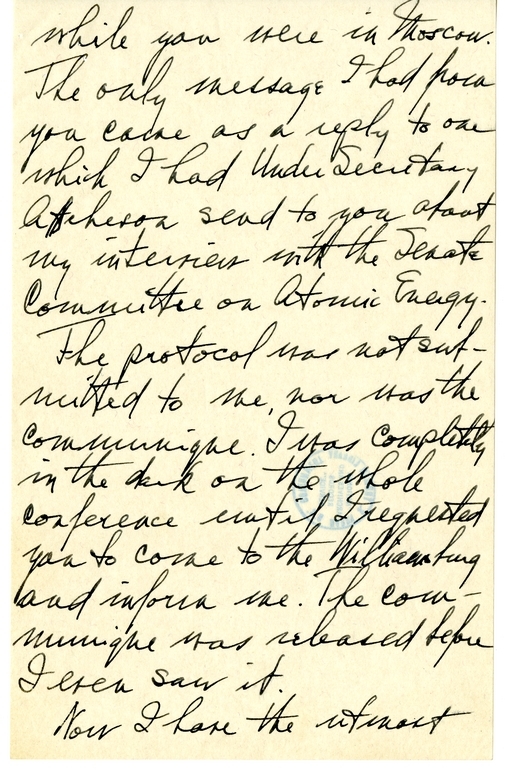 while you were in Moscow.
The only message I had from
you came as a reply to one
which I had Under Secretary
Acheson send to you about
my interview with the Senate
Committee on Atomic Energy.
The protocol was not sub-
mitted to me, nor was the
communique. I was completely
in the dark on the whole
conference until I requested
you to come to the Williamsburg
and inform me. The com-
munique was released before
I even saw it.
Now I have the utmost